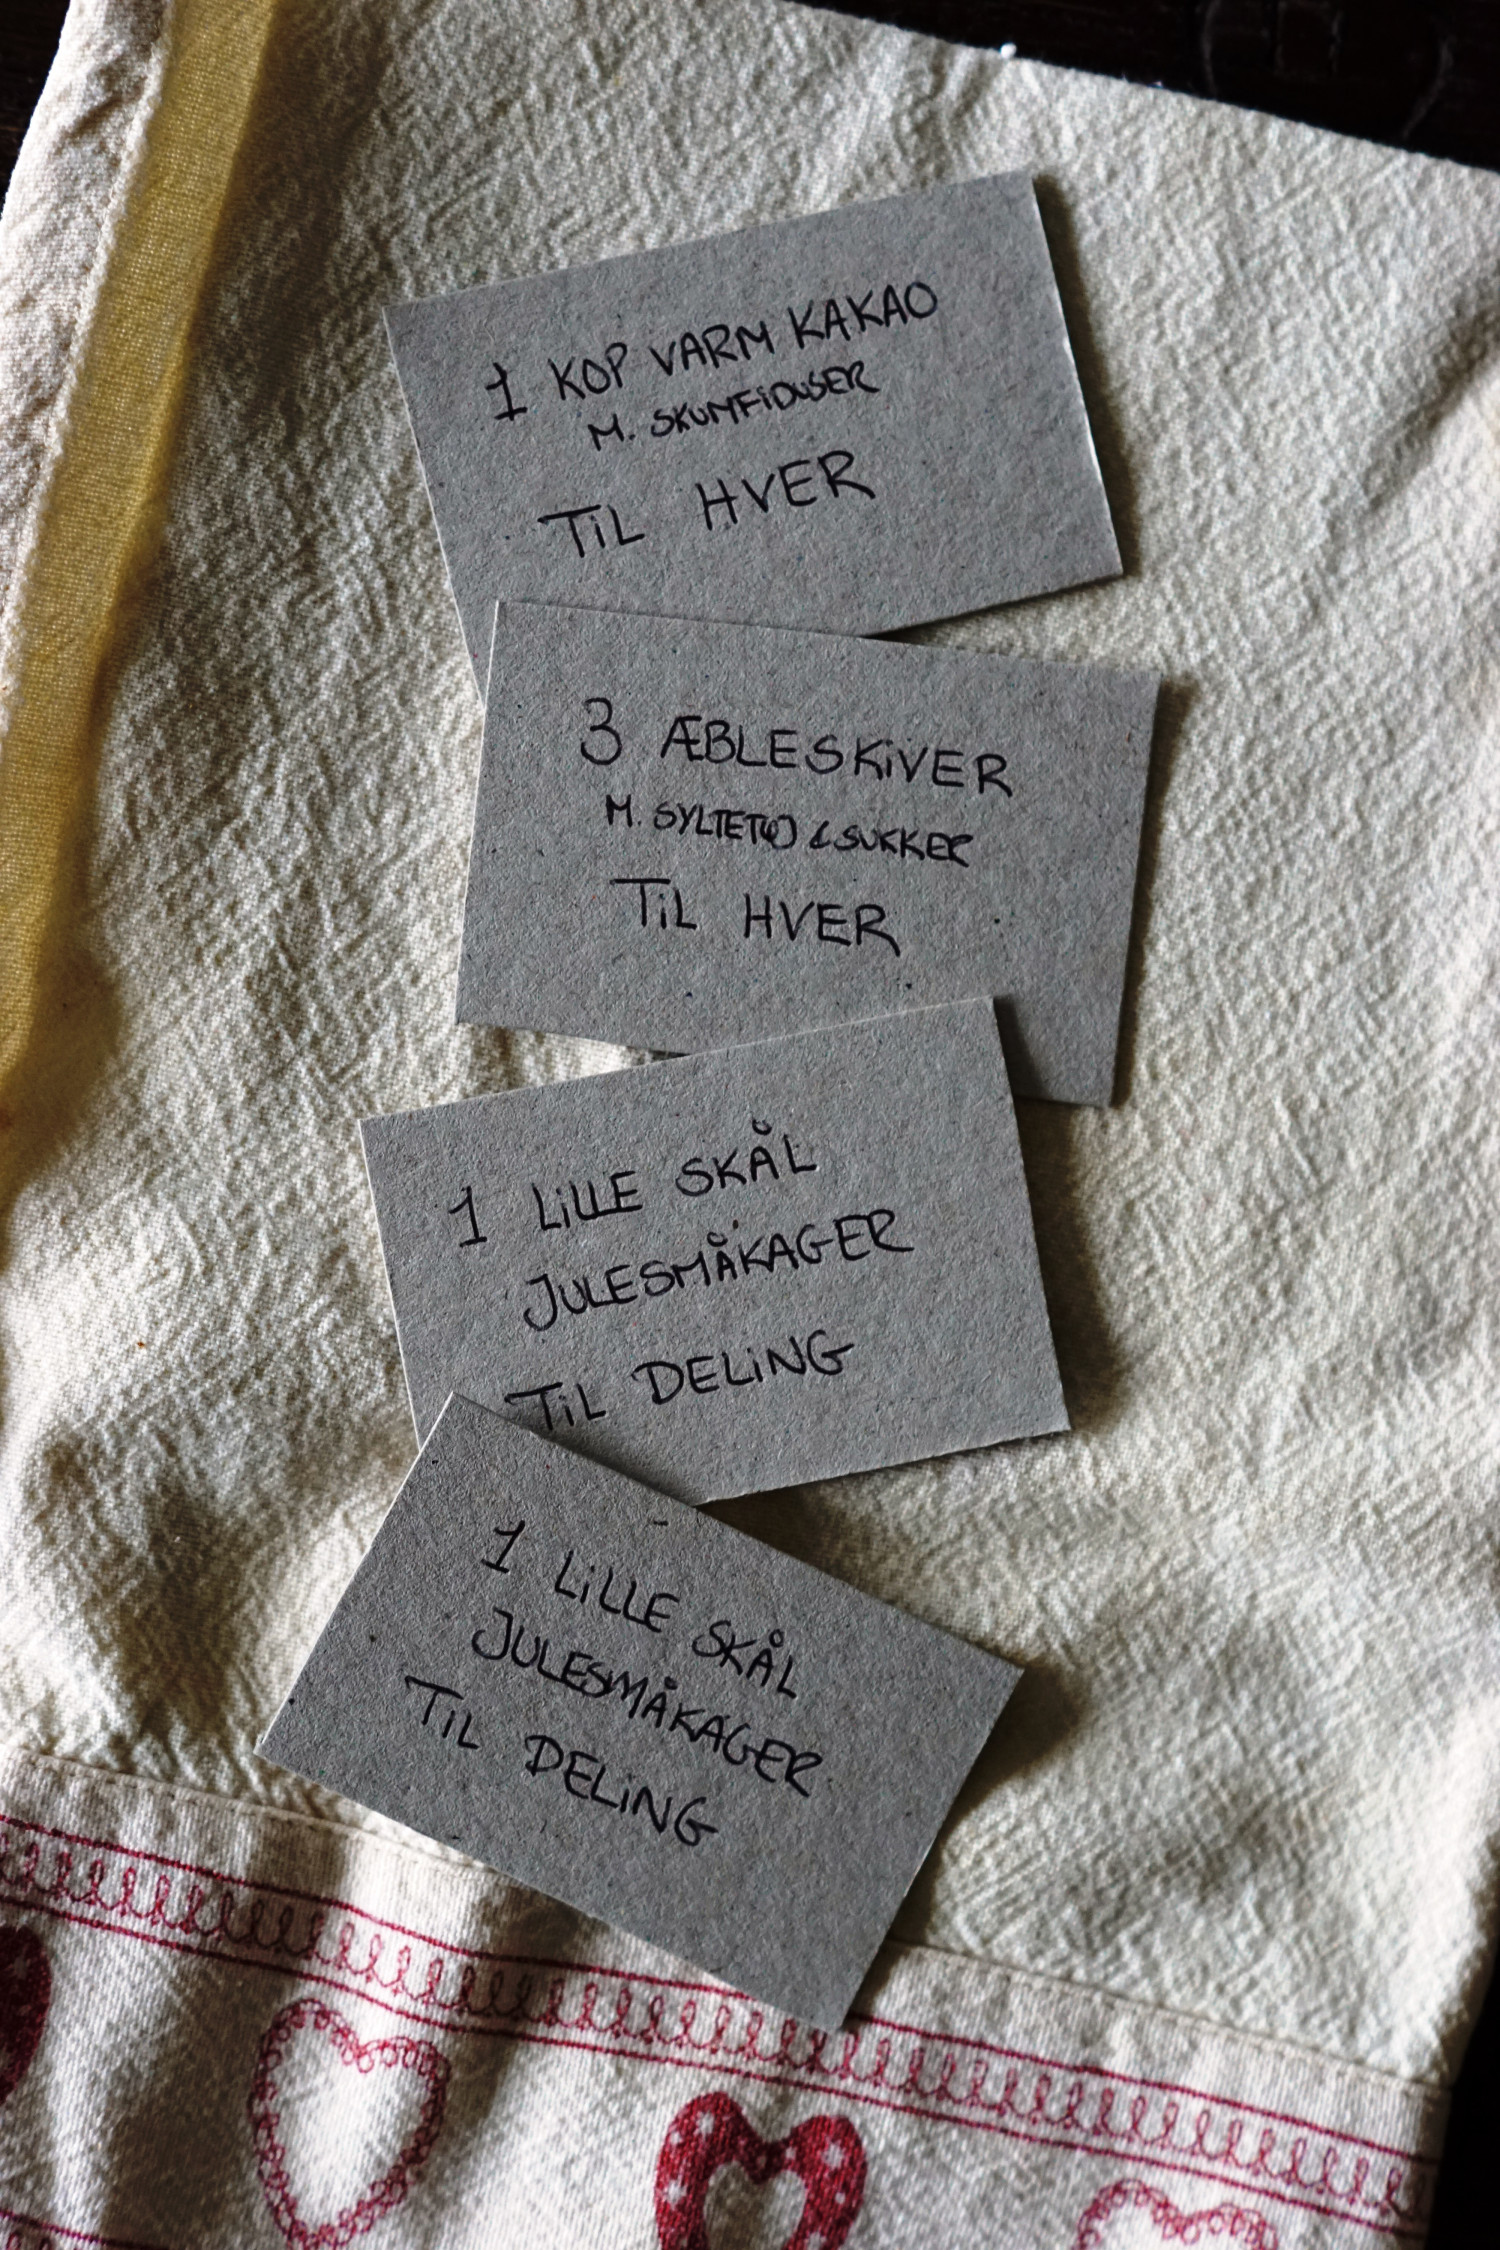 1 KOP VARM KAKAO
M. SKUMFIDUSER
TIL HVER
3 ÆBLESKIVER
M. SYLTETØJ & SUKKER
TIL HVER
1 LILLE SKÅL
JULESMÅKAGER
TIL DELING
1 LILLE SKÅL
JULESMÅKAGER
TIL DELING